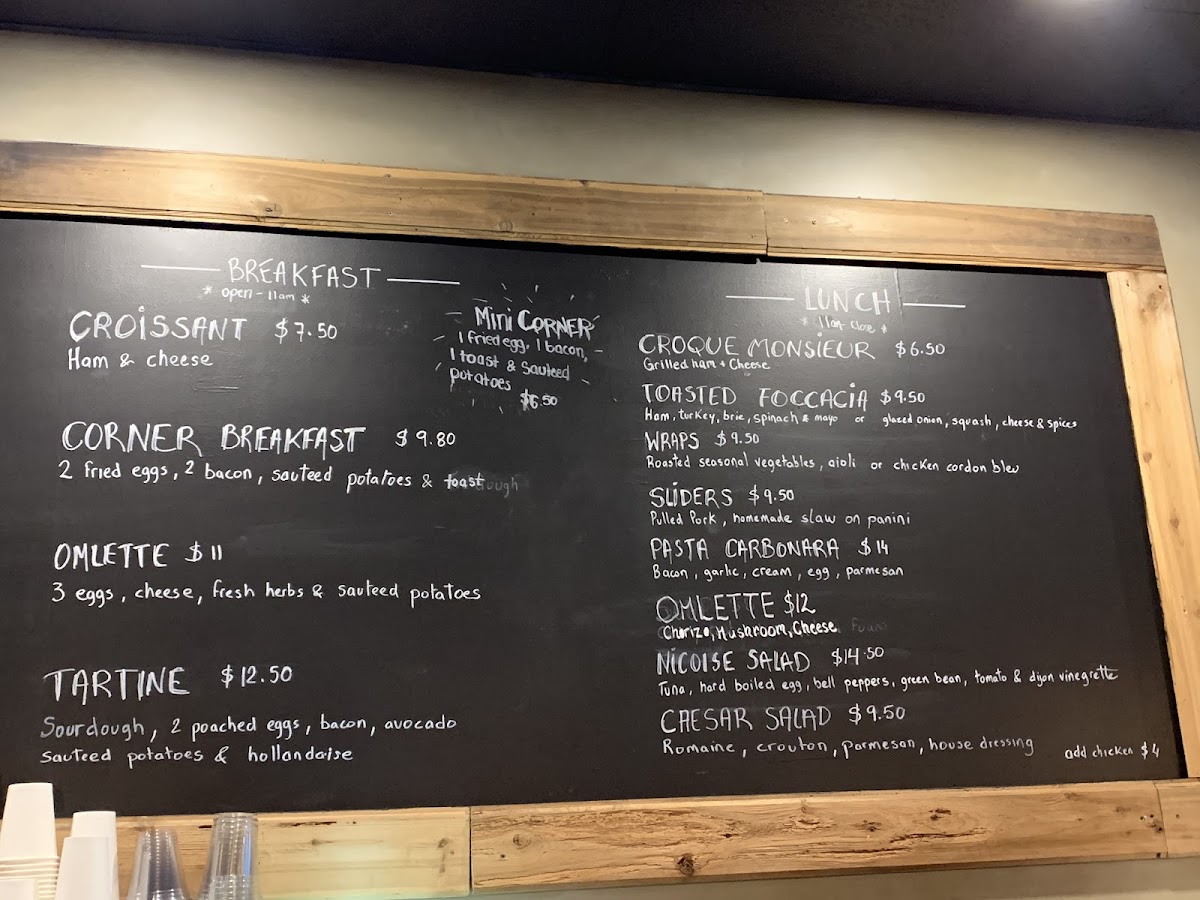 BREAKFAST
* open - 11am *
CROISSANT $7.50
Ham & cheese
Mini CORNER
1 fried egg, 1 bacon,
1 toast & Sauteed
potatoes
$6.50
CORNER BREAKFAST $9.80
2 fried eggs, 2 bacon, sauteed potatoes & toast
OMLETTE $11
3 eggs, cheese, fresh herbs & sauteed potatoes
TARTINE $12.50
Sourdough, 2 poached eggs, bacon, avocado
sauteed potatoes & hollandaise
LUNCH
* 11am close *
CROQUE MONSIEUR $6.50
Grilled ham + Cheese
TOASTED FOCCACIA $9.50
Ham, turkey, brie, spinach & mayo or glazed onion, squash, cheese & spices
WRAPS $9.50
Roasted seasonal vegetables, aioli or chicken cordon bleu
SLIDERS $9.50
Pulled Pork, homemade slaw on panini
PASTA CARBONARA $14
Bacon, garlic, cream, egg, parmesan
OMLETTE $12
Chorizo, Mushroom, Cheese
NICOISE SALAD $14.50
Tuna, hard boiled egg, bell peppers, green bean, tomato & dijon vinegrette
CAESAR SALAD $9.50
Romaine, crouton, parmesan, house dressing add chicken $4